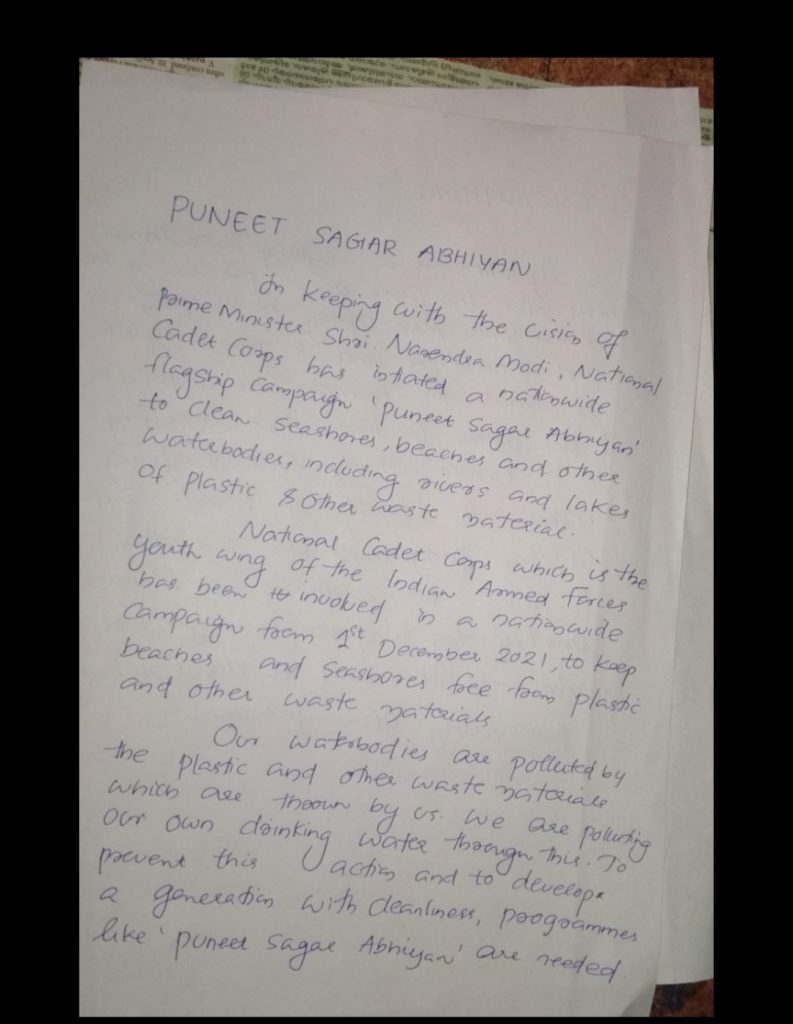 PUNEET SAGAR ABHIYAN
In keeping with the vision of
Prime Minister Shri. Narendra Modi, National
Cadet Corps has intiated a nationwide
flagship campaign 'Puneet Sagar Abhiyan'
to clean seashores, beaches and other
waterbodies, including rivers and lakes
of plastic & other waste material.
National Cadet Corps which is the
youth wing of the Indian Armed forces
has been involved in a nationwide
campaign from 1st December 2021, to keep
beaches and seashores free from plastic
and other waste materials
Our waterbodies are polluted by
the plastic and other waste materials
which are thrown by us. We are polluting
our own drinking water through this. To
prevent this action and to develope
a generation with cleanliness, programmes
like 'Puneet Sagar Abhiyan' are needed.